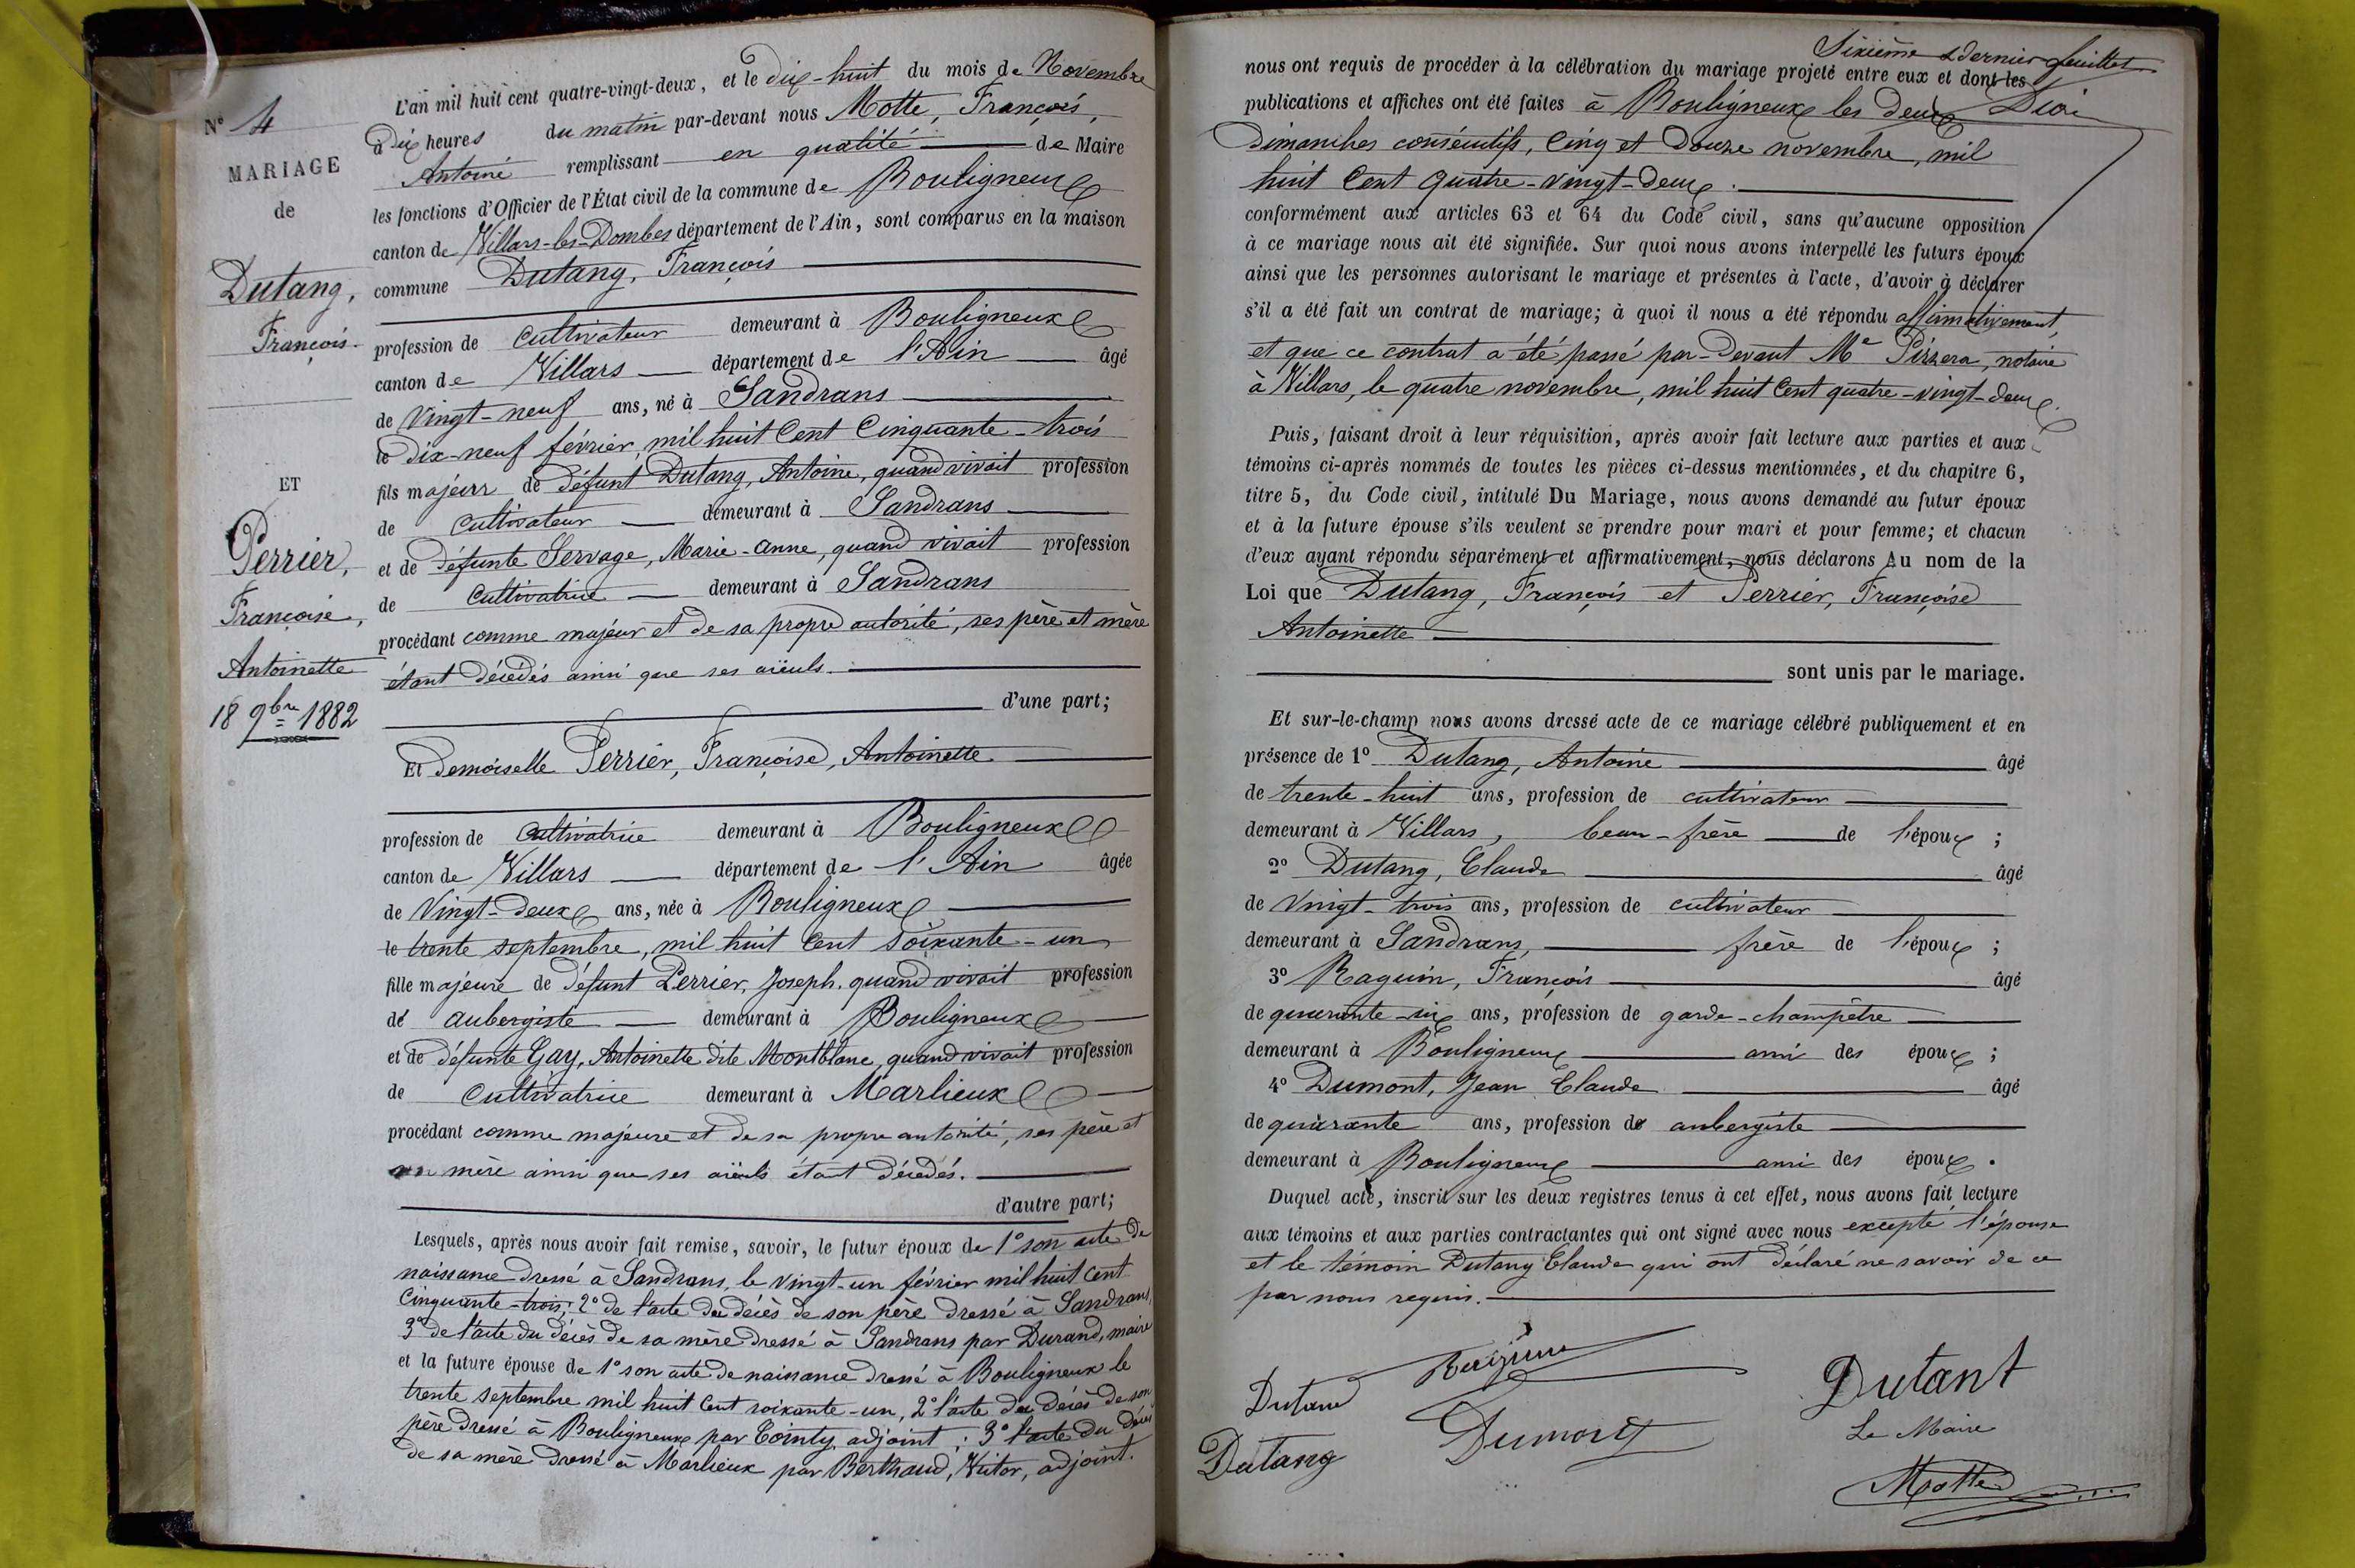 N° 4
MARIAGE
de
Dutang,
François.
ET
Perrier,
Françoise,
Antoinette
18 9bre 1882
L'an mil huit cent quatre-vingt-deux, et le dix-huit du mois de Novembre
à Dix heures du matin par-devant nous Motte, François,
Antoine remplissant en qualité de Maire
les fonctions d'Officier de l'État civil de la commune de Bouligneux
canton de Villars-les-Dombes département de l'Ain, sont comparus en la maison
commune Dutang, François
profession de cultivateur demeurant à Bouligneux
canton de Villars département de l'Ain âgé
de Vingt-neuf ans, né à Sandrans
le dix-neuf février, mil huit Cent Cinquante-trois
fils majeur de défunt Dutang, Antoine, quand vivait profession
de cultivateur demeurant à Sandrans
et de défunte Servage, Marie-Anne, quand vivait profession
de cultivatrice demeurant à Sandrans
procédant comme majeur et de sa propre autorité, ses père et mère
étant décédés ainsi que ses aïeuls.
d'une part;
Et Demoiselle Perrier, Françoise, Antoinette
profession de cultivatrice demeurant à Bouligneux
canton de Villars département de l'Ain âgée
de Vingt-deux ans, née à Bouligneux
le trente septembre, mil huit Cent soixante-un
fille majeure de défunt Perrier, Joseph, quand vivait profession
de aubergiste demeurant à Bouligneux
et de défunte Gay, Antoinette dite Montblanc, quand vivait profession
de cultivatrice demeurant à Marlieux
procédant comme majeure et de sa propre autorité, ses père et
mère ainsi que ses aïeuls étant décédés.
d'autre part;
Lesquels, après nous avoir fait remise, savoir, le futur époux de 1° son acte de
naissance dressé à Sandrans, le vingt-un février mil huit cent
Cinquante-trois; 2° de l'acte du décès de son père dressé à Sandrans,
3° de l'acte du décès de sa mère dressé à Sandrans par Durand, maire
et la future épouse de 1° son acte de naissance dressé à Bouligneux le
trente septembre mil huit Cent soixante-un, 2° l'acte du décès de son
père dressé à Bouligneux par Cointy, adjoint; 3° l'acte du décès
de sa mère dressé à Marlieux par Berthaud, Victor, adjoint.
Sixième & dernier feuillet
nous ont requis de procéder à la célébration du mariage projeté entre eux et dont les
publications et affiches ont été faites à Bouligneux les deux
Dimanches consécutifs, Cinq et Douze novembre, mil
huit Cent quatre-vingt-deux.
conformément aux articles 63 et 64 du Code civil, sans qu'aucune opposition
à ce mariage nous ait été signifiée. Sur quoi nous avons interpellé les futurs époux
ainsi que les personnes autorisant le mariage et présentes à l'acte, d'avoir à déclarer
s'il a été fait un contrat de mariage; à quoi il nous a été répondu affirmativement,
et que ce contrat a été passé par-devant Me Pizzera, notaire
à Villars, le quatre novembre, mil huit Cent quatre-vingt-deux.
Puis, faisant droit à leur réquisition, après avoir fait lecture aux parties et aux
témoins ci-après nommés de toutes les pièces ci-dessus mentionnées, et du chapitre 6,
titre 5, du Code civil, intitulé Du Mariage, nous avons demandé au futur époux
et à la future épouse s'ils veulent se prendre pour mari et pour femme; et chacun
d'eux ayant répondu séparément et affirmativement, nous déclarons Au nom de la
Loi que Dutang, François et Perrier, Françoise
Antoinette
sont unis par le mariage.
Et sur-le-champ nous avons dressé acte de ce mariage célébré publiquement et en
présence de 1° Dutang, Antoine âgé
de trente-huit ans, profession de cultivateur
demeurant à Villars, beau-frère de l'époux;
2° Dutang, Claude âgé
de Vingt-trois ans, profession de cultivateur
demeurant à Sandrans, frère de l'époux;
3° Raguin, François âgé
de quarante-six ans, profession de garde-champêtre
demeurant à Bouligneux ami des époux;
4° Dumont, Jean Claude âgé
de quarante ans, profession de aubergiste
demeurant à Bouligneux ami des époux.
Duquel acte, inscrit sur les deux registres tenus à cet effet, nous avons fait lecture
aux témoins et aux parties contractantes qui ont signé avec nous excepté l'épouse
et le témoin Dutang Claude qui ont déclaré ne savoir de ce
par nous requis.
Dutant
Dumont
Dutang
Le Maire
Motte